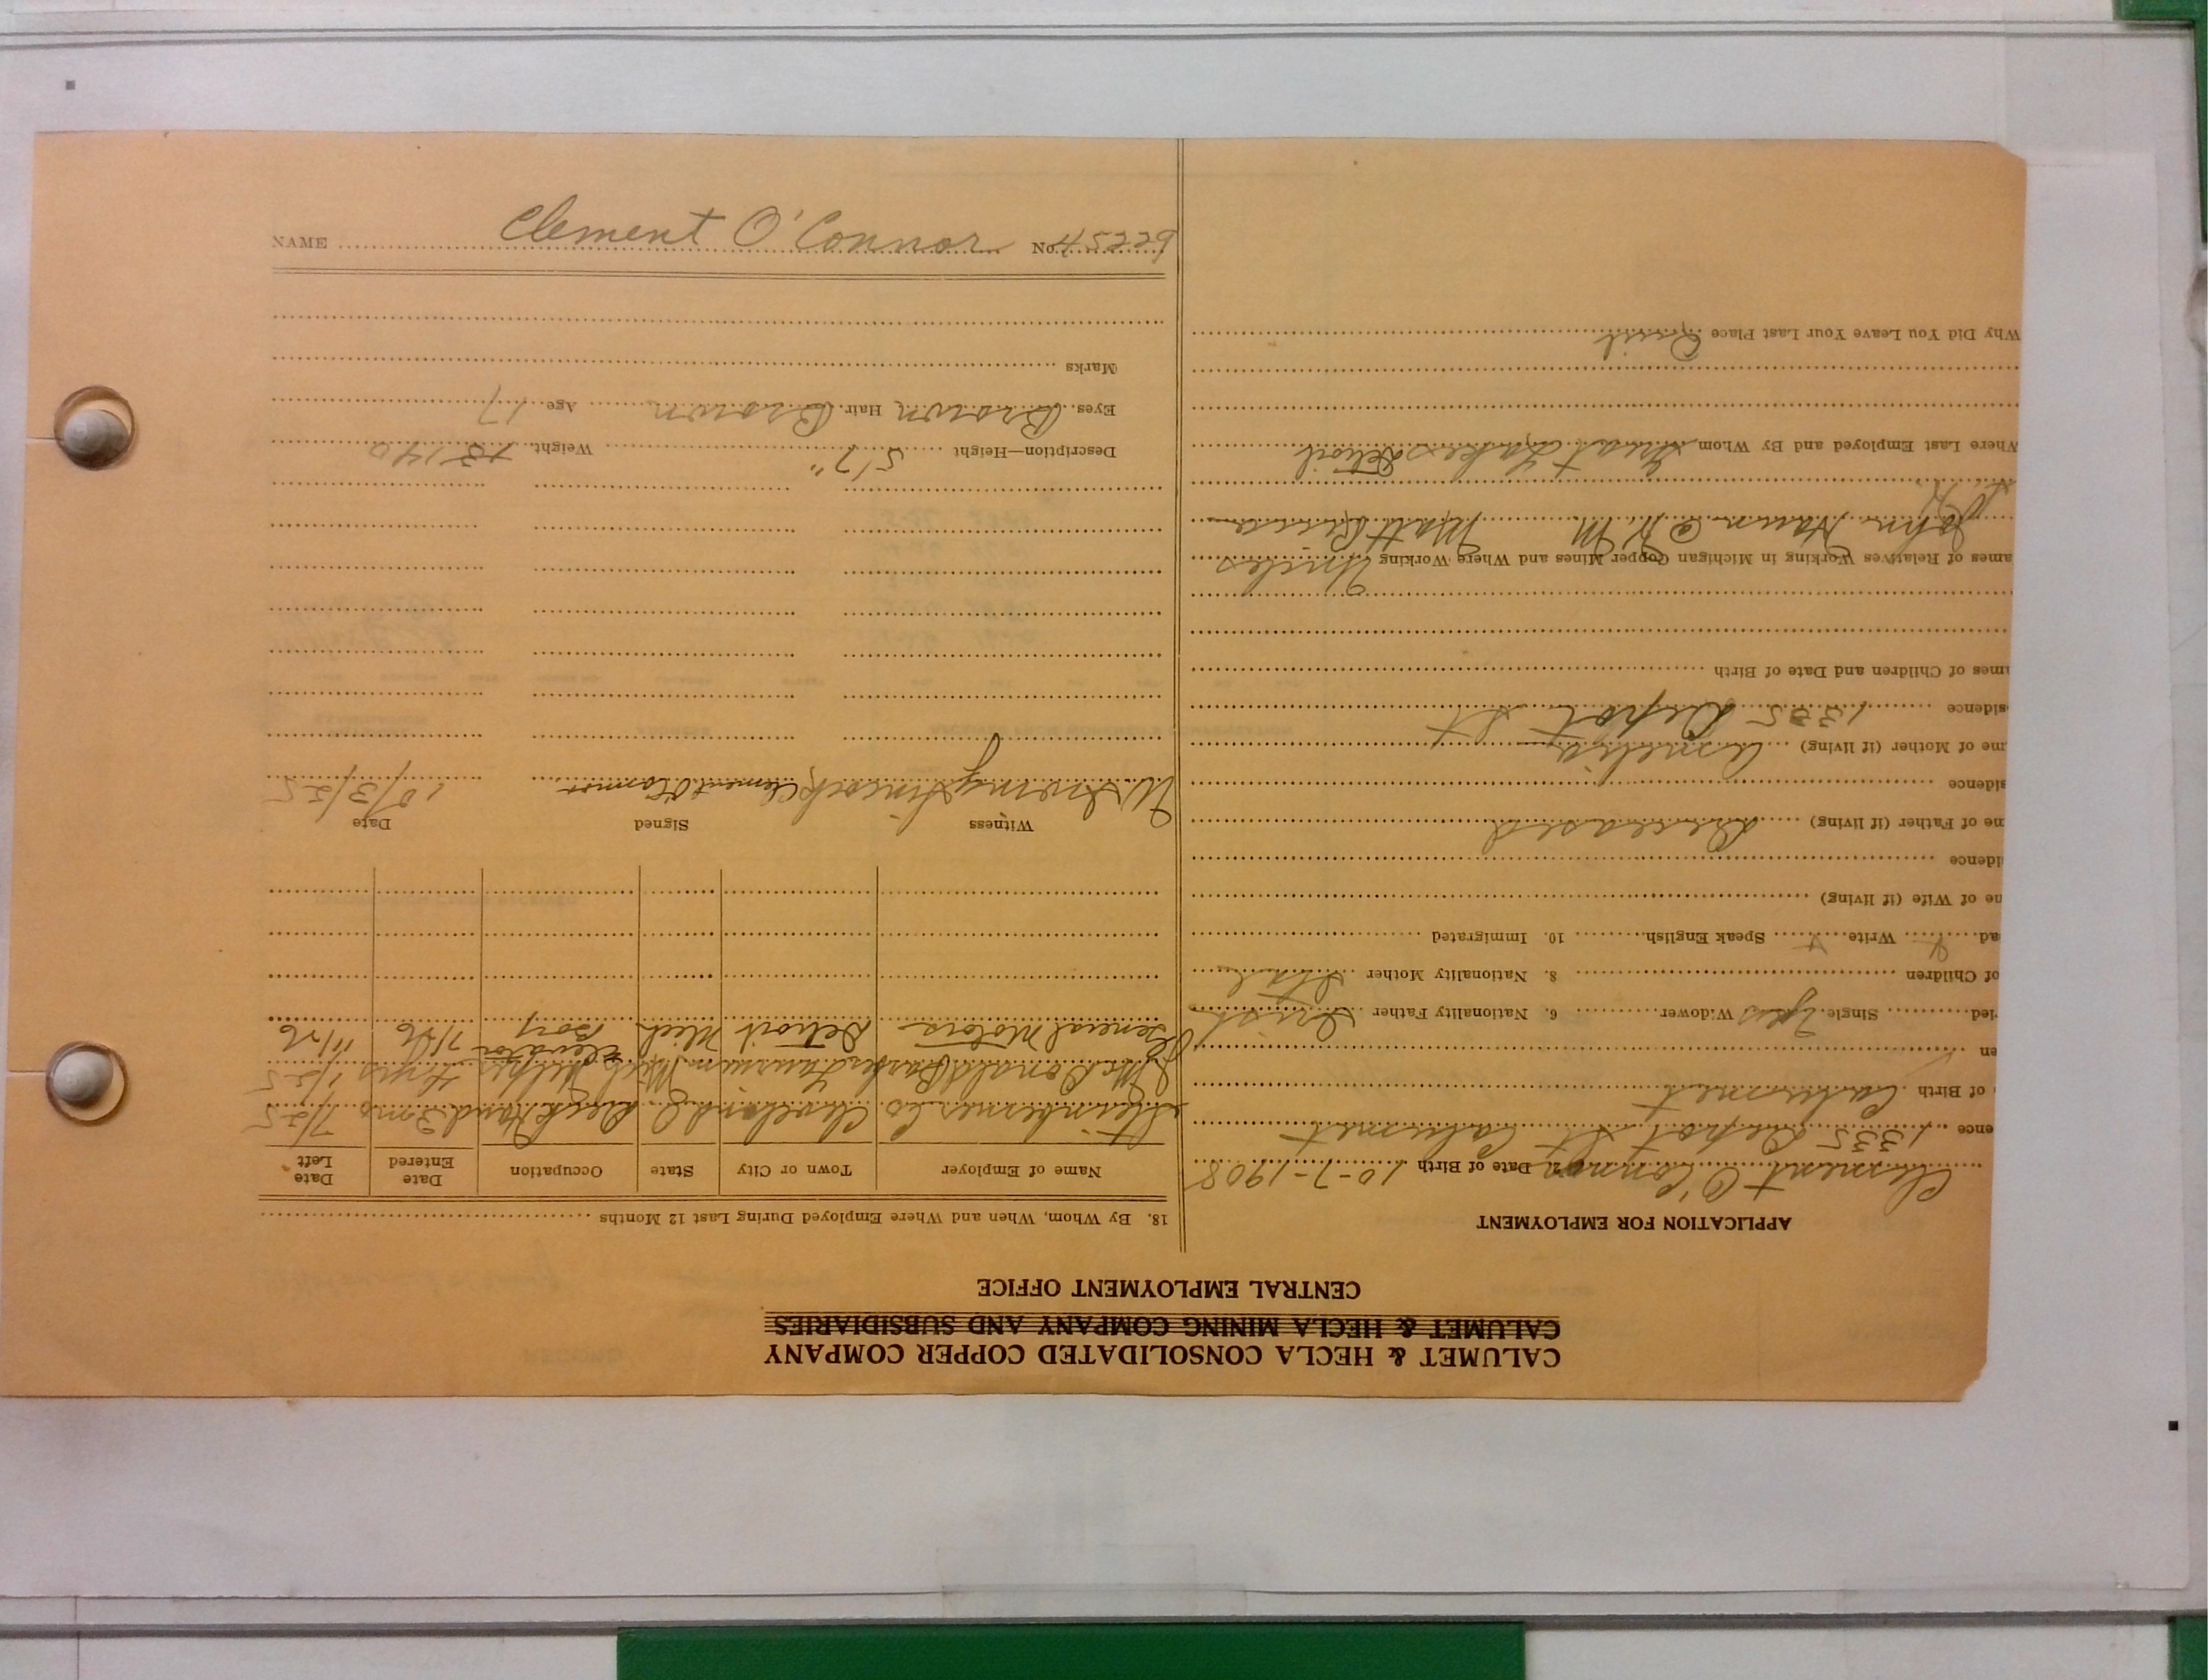 CALUMET & HECLA CONSOLIDATED COPPER COMPANY
CALUMET & HECLA MINING COMPANY AND SUBSIDIARIES
CENTRAL EMPLOYMENT OFFICE
APPLICATION FOR EMPLOYMENT
Clement O'Connor 2. Date of Birth 10-7-1908
ence 1335 Depot St Calumet
of Birth Calumet
en
ied Single yes Widower 6. Nationality Father Irish
of Children 8. Nationality Mother Ital
ad Write Speak English 10. Immigrated
ne of Wife (if living)
idence
me of Father (if living) Deceased
sidence
me of Mother (if living) Amelia
sidence 1335 Depot St
ames of Children and Date of Birth
ames of Relatives Working in Michigan Copper Mines and Where Working Uncles
John Haun @ K. M. Matt
Where Last Employed and By Whom Great Lakes Detroit
Why Did You Leave Your Last Place Quit
18. By Whom, When and Where Employed During Last 12 Months
Name of Employer Town or City State Occupation Date Entered Date Left
Co Cleveland O. Deck Hand 3 mo 7/25
J McDonald Barber Laurium Mich Helper 1/25
General Motors Detroit Mich Elevator Boy 7/26 11/26
Witness Signed Date
Clement O'Connor 10/3/25
Description—Height 5'7" Weight 140
Eyes Brown Hair Brown Age 17
Marks
NAME Clement O'Connor No. 45229